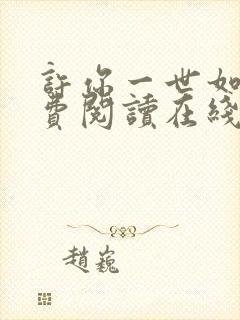 許你一世如
費閱讀在綫
趙巍